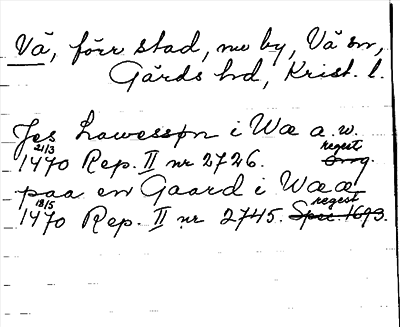 Vä, förr stad, nu by, Vä sn,
Gärds hd, Krist. l.
Jes Lawessøn i Wæ a. w.
21/3 regest
1470 Rep. II nr 2726.
paa en Gaard i Wæ æ
18/5 regest
1470 Rep. II nr 2745. Spec. 1693.